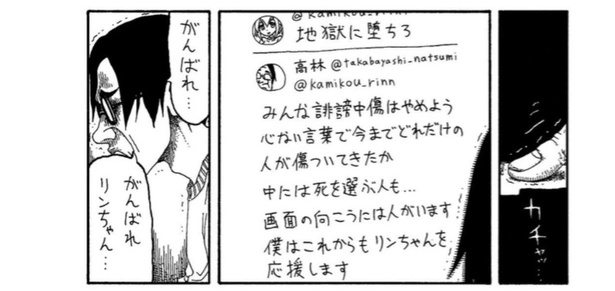 カチャッ…
@kamikou_rinn
地獄に堕ちろ
高林 @takabayashi_natsumi
@kamikou_rinn
みんな誹謗中傷はやめよう
心ない言葉で今までどれだけの
人が傷ついてきたか
中には死を選ぶ人も…
画面の向こうには人がいます
僕はこれからもリンちゃんを
応援します
がんばれ…
がんばれ
リンちゃん…